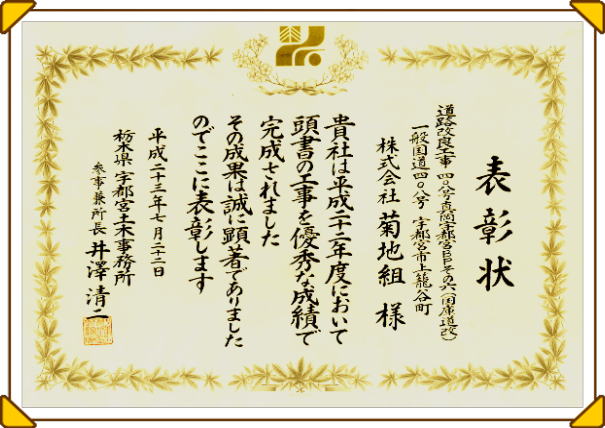 表彰状
道路改良工事 四〇八号・真岡宇都宮BPその六(国庫道改)
一般国道四〇八号 宇都宮市上籠谷町
株式会社 菊地組 様
貴社は平成二十二年度において
頭書の工事を優秀な成績で
完成されました
その成果は誠に顕著でありました
のでここに表彰します
平成二十三年七月二十二日
栃木県 宇都宮土木事務所
参事兼所長 井澤清二